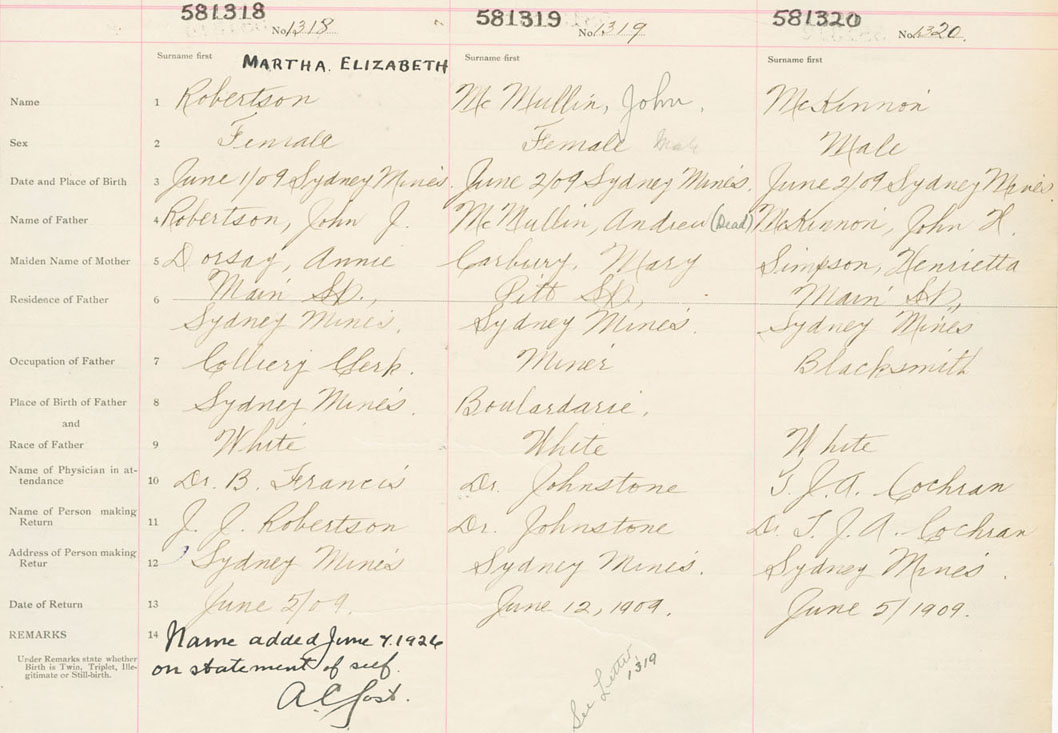 581318 581319 581320
No. 1318 No. 1319 No. 1320.
Surname first MARTHA ELIZABETH Surname first Surname first
Name 1 Robertson McMullin, John, McKinnon
Sex 2 Female Female Male Male
Date and Place of Birth 3 June 1/09 Sydney Mines. June 2/09 Sydney Mines. June 2/09 Sydney Mines.
Name of Father 4 Robertson, John J. McMullin, Andrew (Dead) McKinnon, John H.
Maiden Name of Mother 5 Dorsay, Annie Carbury, Mary Simpson, Henrietta
Residence of Father 6 Main St., Pitt St., Main St.,
Sydney Mines. Sydney Mines. Sydney Mines
Occupation of Father 7 Colliery Clerk. Miner Blacksmith
Place of Birth of Father 8 Sydney Mines. Boulardarie.
and
Race of Father 9 White White White
Name of Physician in at-
tendance 10 Dr. B. Francis Dr. Johnstone T. J. A. Cochran
Name of Person making
Return 11 J. J. Robertson Dr. Johnstone Dr. T. J. A. Cochran
Address of Person making
Retur 12 Sydney Mines Sydney Mines. Sydney Mines.
Date of Return 13 June 5/09. June 12, 1909. June 5/1909.
REMARKS 14 Name added June 7. 1926
Under Remarks state whether
Birth is Twin, Triplet, Ille-
gitimate or Still-birth.
on statement of self.
A C Jost.
See Letter
1319